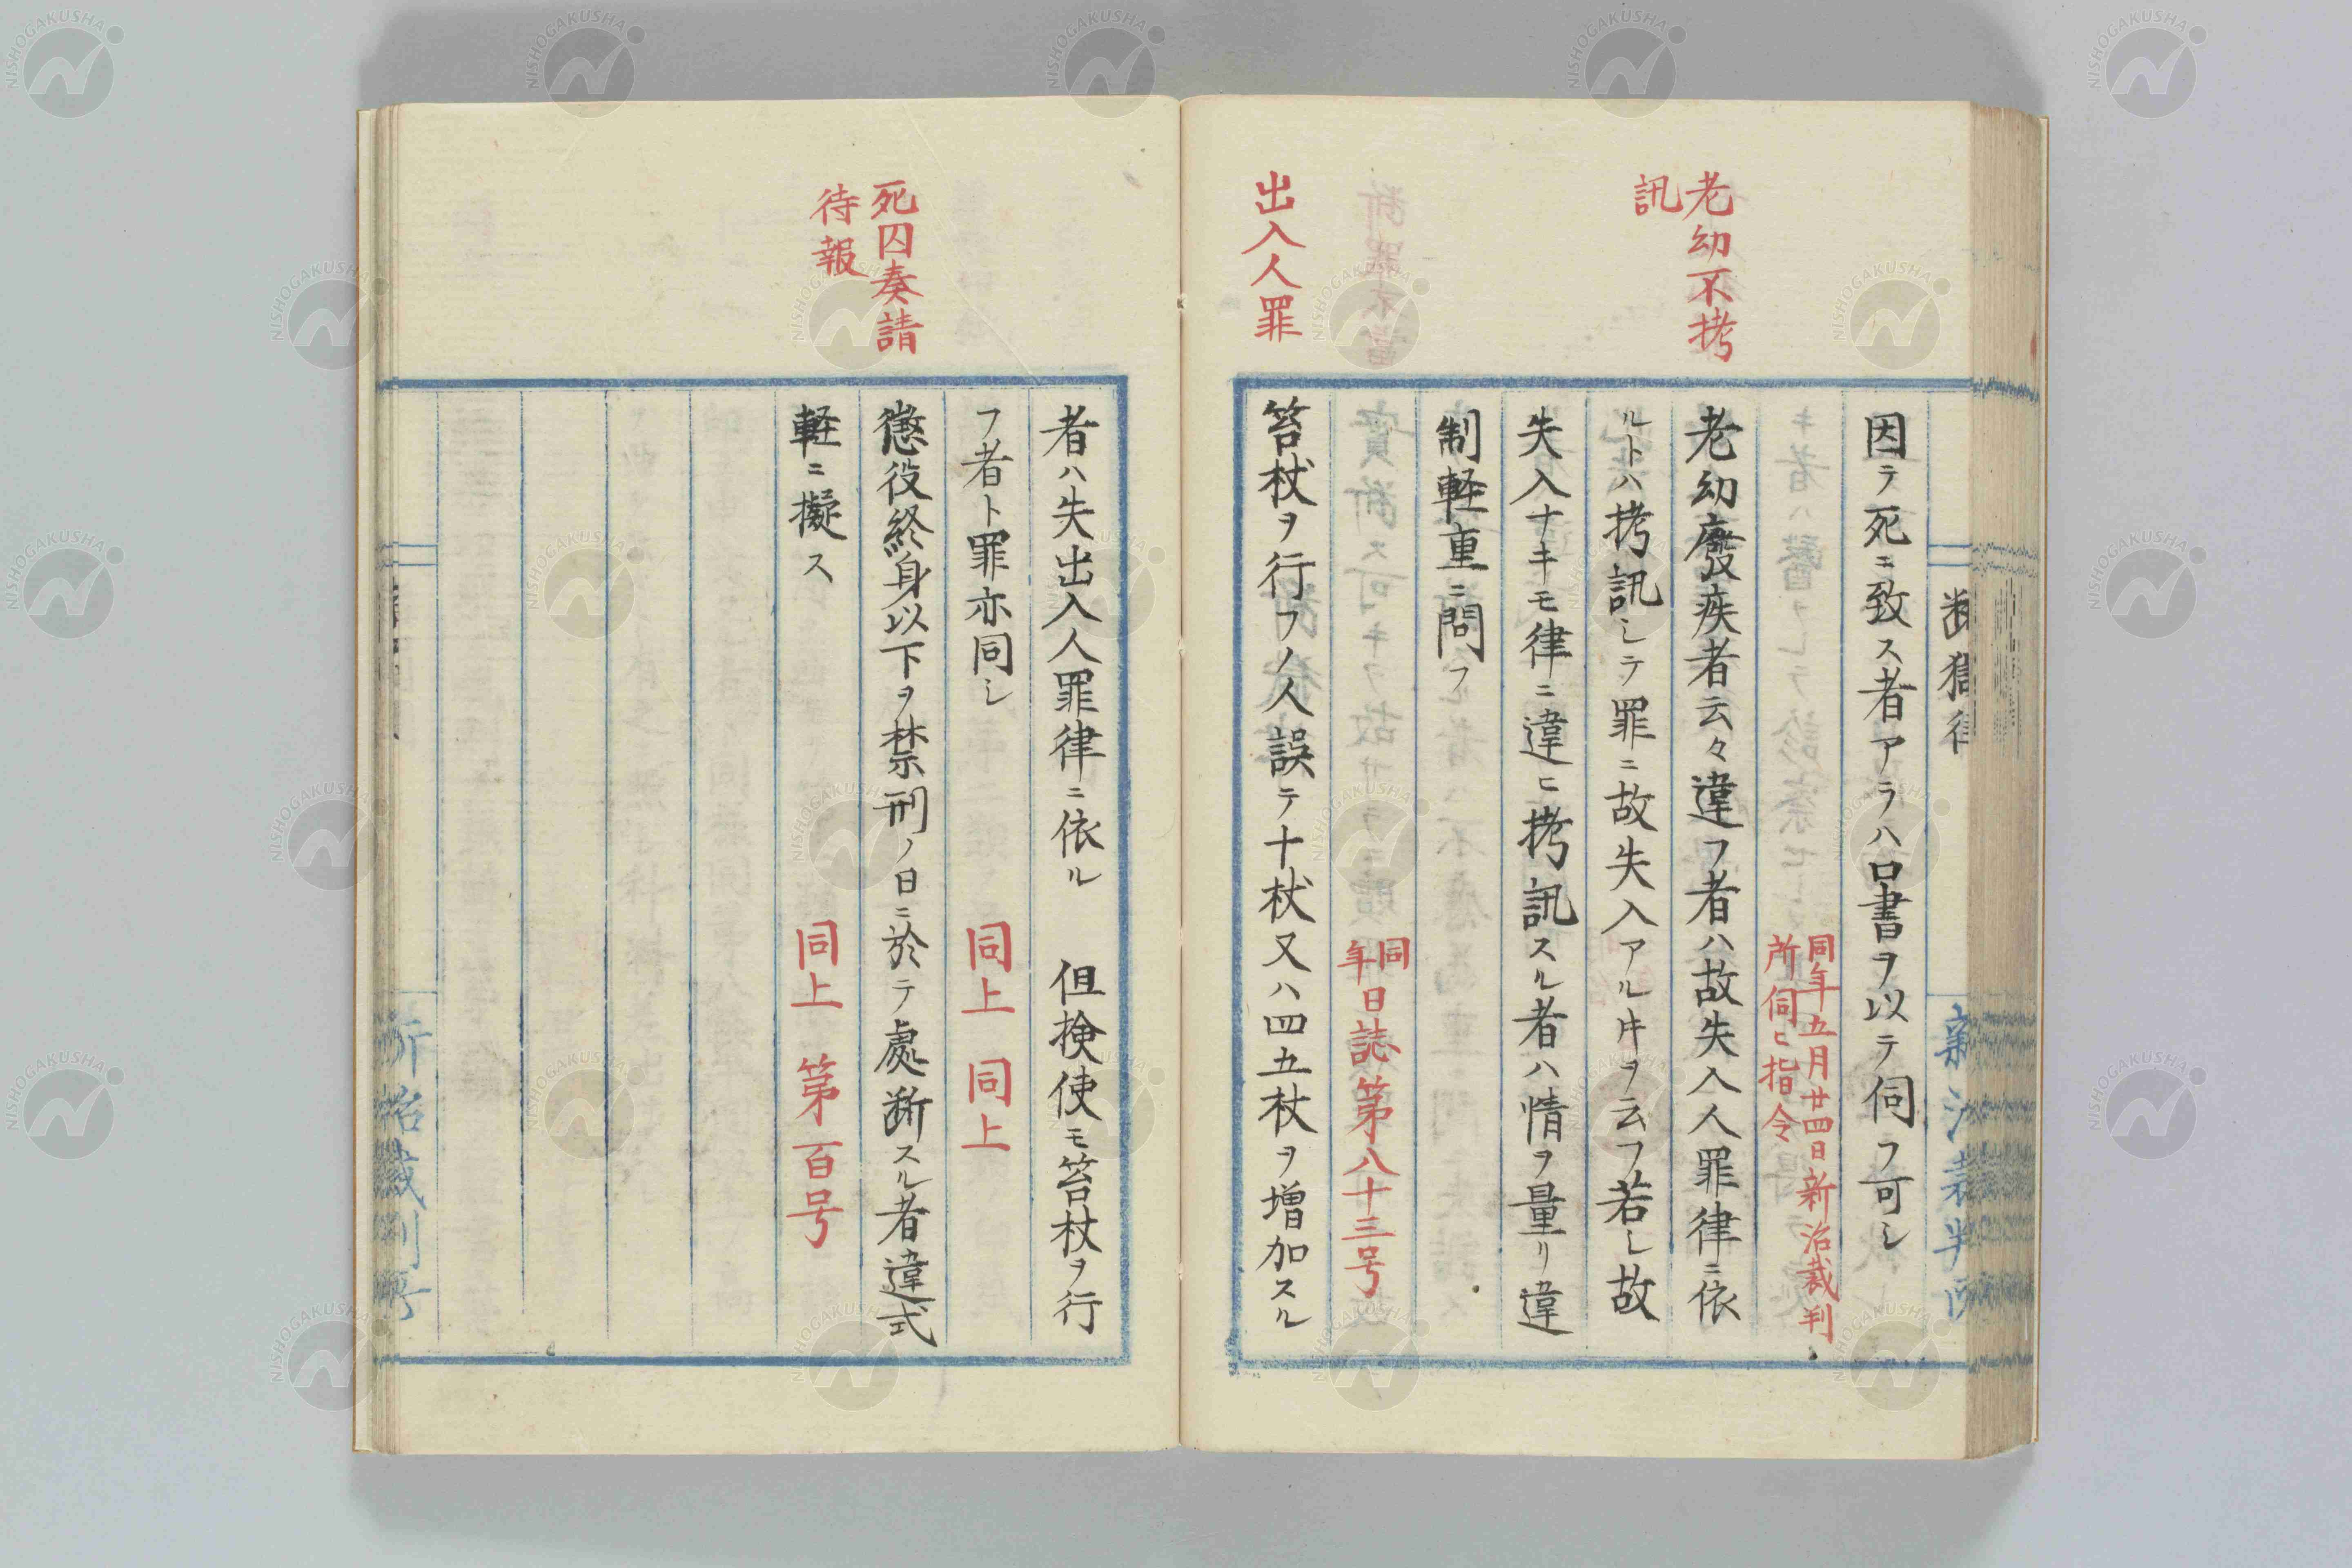 断獄律
新治裁判所
因テ死ニ致ス者アラハ口書ヲ以テ伺フ可シ
同年五月廿四日新治裁判
所伺ヒ指令
老幼不拷
訊
老幼廢疾者云々違フ者ハ故失入人罪律ニ依
ルトハ拷訊シテ罪ニ故失入アルヿヲ云フ若シ故
失入ナキモ律ニ違ヒ拷訊スル者ハ情ヲ量リ違
制軽重ニ問フ
同
年日誌第八十三号
出入人罪
笞杖ヲ行フノ人誤テ十杖又ハ四五杖ヲ増加スル
者ハ失出入人罪律ニ依ル 但検使モ笞杖ヲ行
フ者ト罪亦同シ 同上 同上
死囚奏請
待報
懲役終身以下ヲ禁刑ノ日ニ於テ處断スル者違式
軽ニ擬ス 同上 第百号
NISHOGAKUSHA